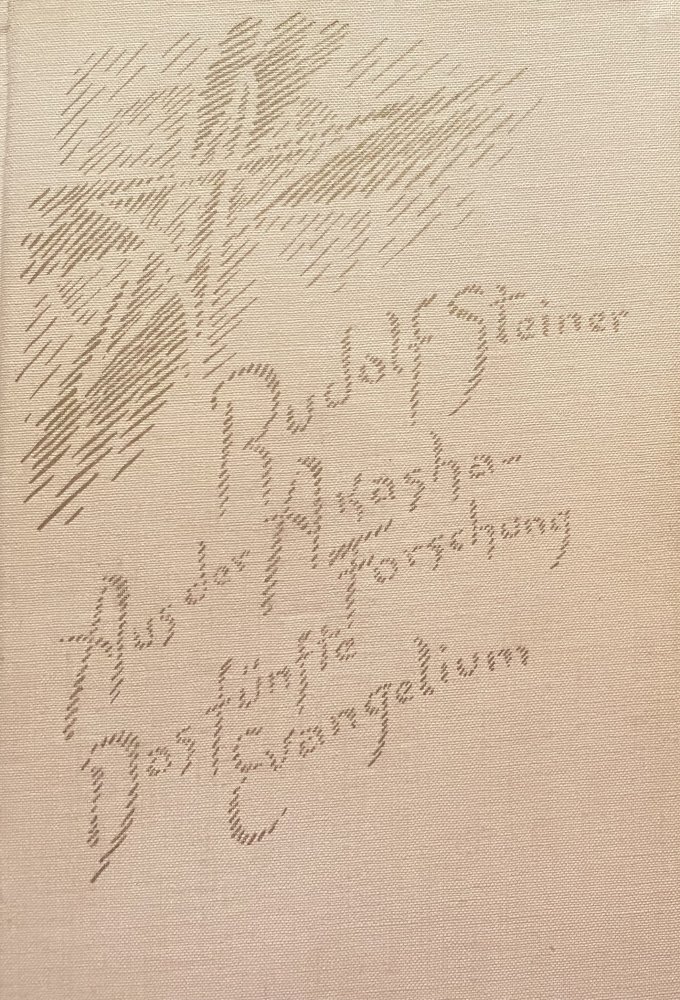 Rudolf Steiner
Aus der Akasha-
Forschung
Das fünfte
Evangelium